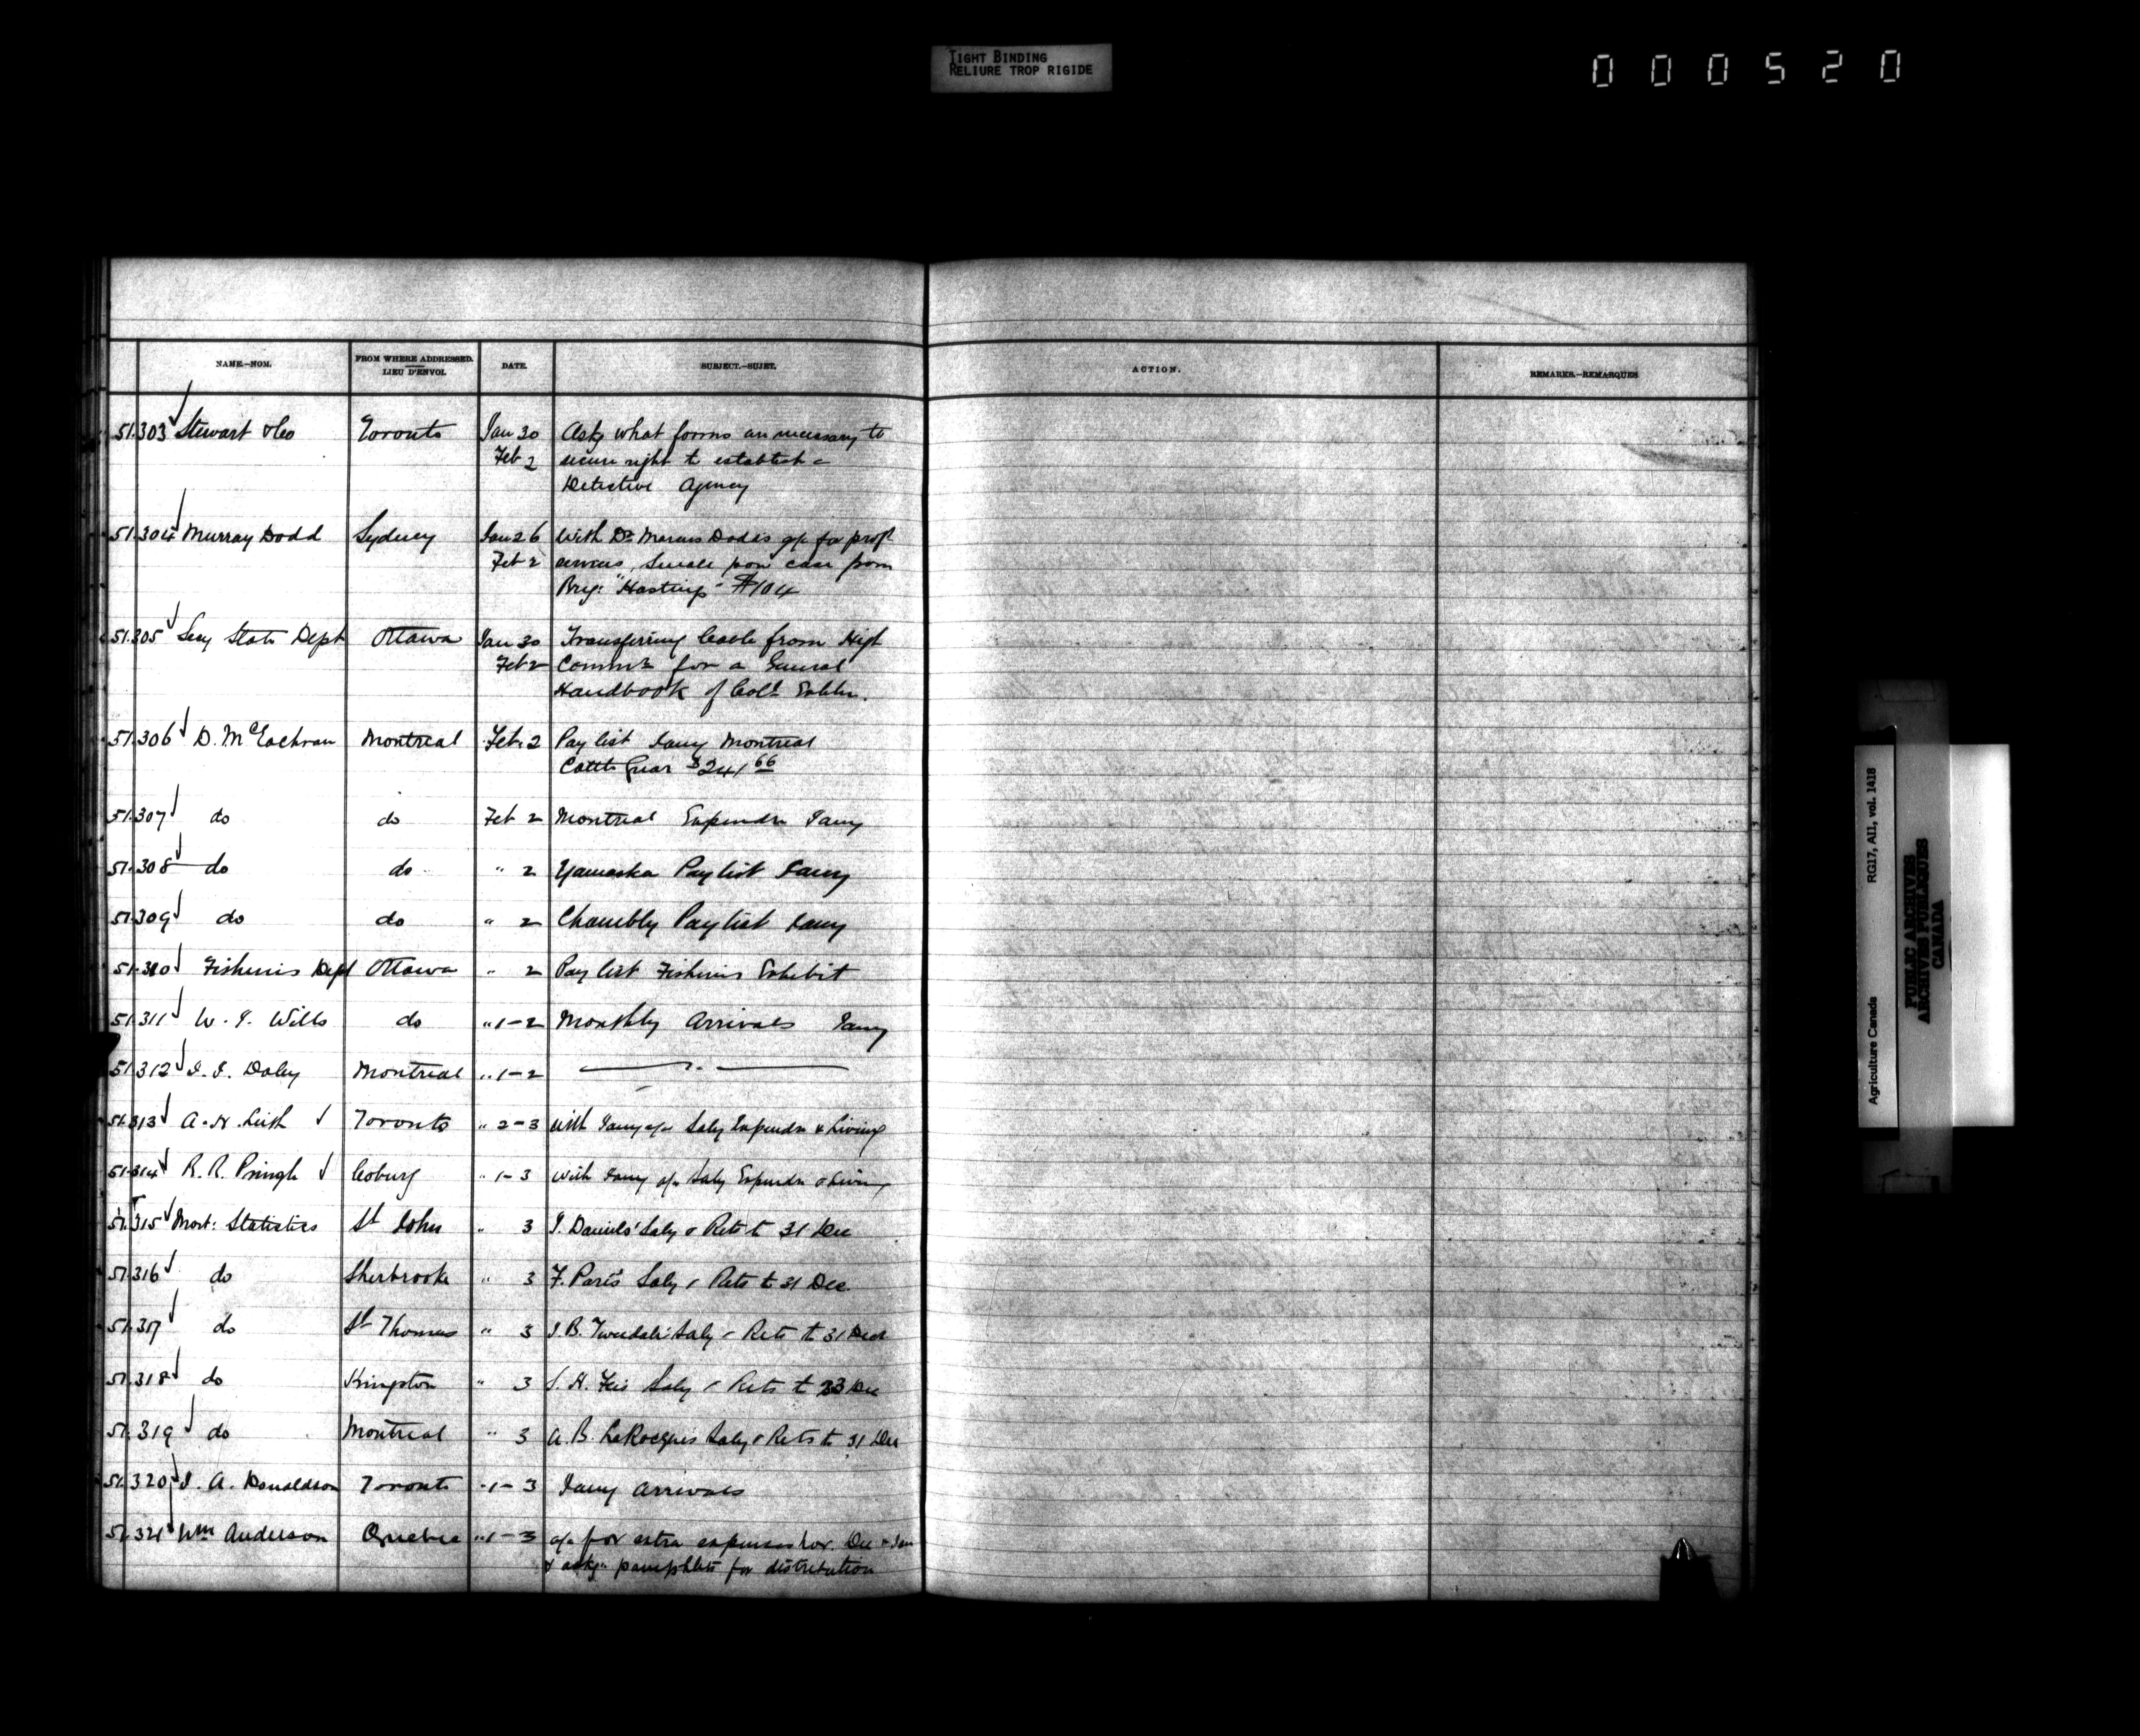 TIGHT BINDING
RELIURE TROP RIGIDE
000520
NAME.–NOM.
FROM WHERE ADDRESSED.
LIEU D'ENVOI.
DATE.
SUBJECT.–SUJET.
ACTION.
REMARKS.–REMARQUES
51.303 Stewart & Co Toronto Jan 30 Asks what forms are necessary to
Feb 2 secure right to establish a
Detective Agency
51.304 Murray Dodd Sydney Jan 26 With Dr Marcus Dodds a/c for prof
Feb 2 services, Smale pox case from
Brig: "Hastings" $104
51.305 Secy State Dept Ottawa Jan 30 Transferring Cable from High
Feb 2 Commr for a General
Handbook of Coll Exhbn.
51.306 D. McEachran Montreal Feb. 2 Pay list Jany Montreal
Cattle Quar $241 66
51.307 do do Feb 2 Montreal Expendre Jany
51.308 do do " 2 Yamaska Pay list Jany
51.309 do do " 2 Chambly Pay list Jany
51.310 Fisheries Dept Ottawa " 2 Pay list Fisheries Exhibit
51.311 W. J. Wills do " 1-2 Monthly Arrivals Jany
51.312 J. J. Daley Montreal " 1-2 — " —
51.313 A. H. Toronto " 2-3 with Jany a/c Saly Expendre & Living
51.314 R. R. Pringle Coburg " 1-3 with Jany a/c Saly Expendre & Living
51.315 Mort: Statistics St John " 3 J. Daniels' Saly & Rets to 31 Dec
51.316 do Sherbrooke " 3 F. Paré's Saly & Rets to 31 Dec
51.317 do St Thomas " 3 J. B. Tweedale's Saly & Rets to 31 Dec
51.318 do Kingston " 3 S. H. Saly & Rets to Dec
51.319 do Montreal " 3 A. B. LaRocques Saly & Rets to 31 Dec
51.320 J. A. Donaldson Toronto " 1-3 Jany Arrivals
51.321 Wm Anderson Quebec " 1-3 a/c for extra expenses Nov. Dec & Jan
& askg. pamphlets for distribution
RG17, AII, vol. 1418
Agriculture Canada
PUBLIC ARCHIVES
ARCHIVES PUBLIQUES
CANADA